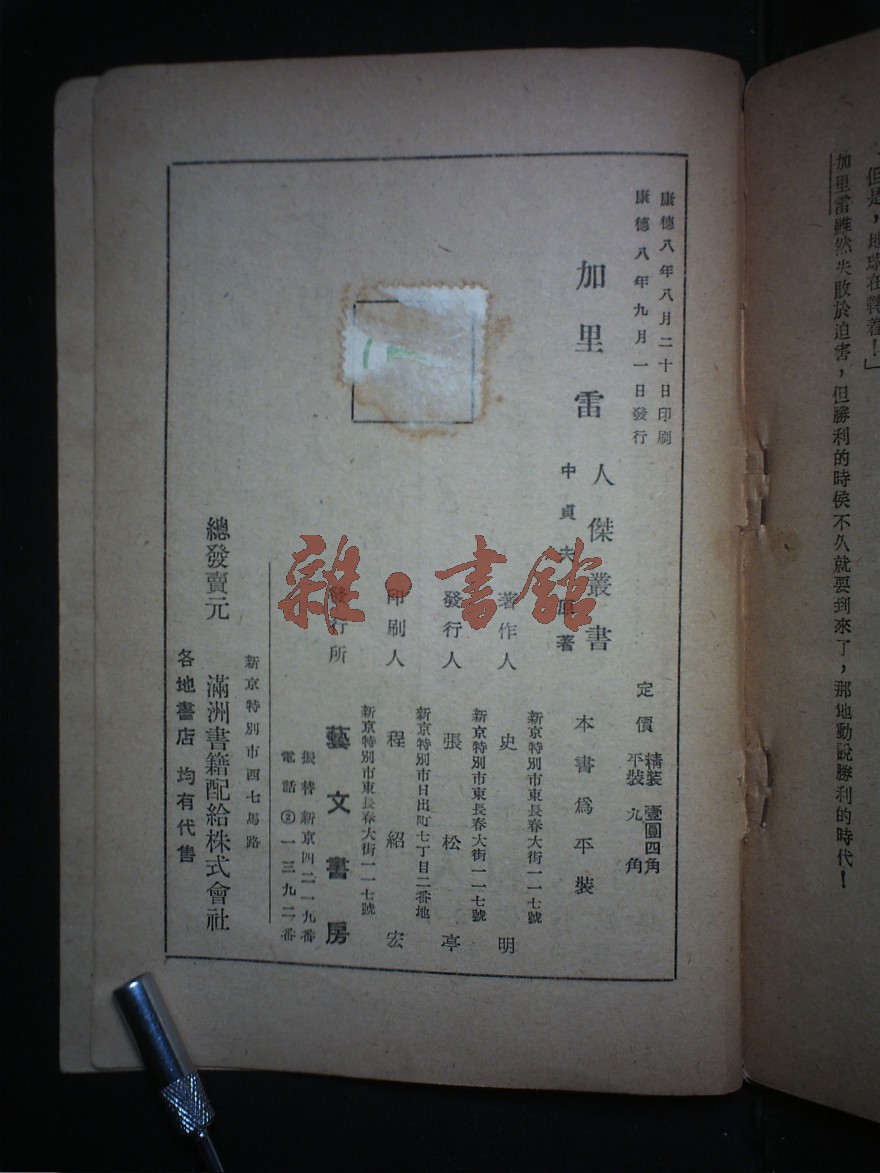 但是，地球在轉着！」
加里雷雖然失敗於迫害，但勝利的時侯不久就要到來了，那地動說勝利的時代！
康德八年八月二十日印刷
康德八年九月一日發行
定價
精裝 壹圓四角
平裝 九角
人傑叢書
加里雷
中貞夫原著
本書爲平裝
新京特別市東長春大街一一七號
著作人 史明
新京特別市東長春大街一一七號
發行人 張松亭
新京特別市日出町七丁目二番地
印刷人 程紹宏
新京特別市東長春大街一一七號
發行所 藝文書房
振替新京四二一九番
電話②一三九二番
新京特別市四七馬路
總發賣元 滿洲書籍配給株式會社
各地書店 均有代售
雜·書館